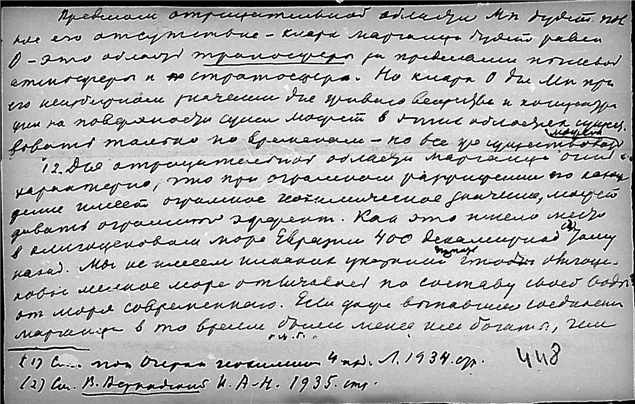 Пределом отрицательной области Mn будет пол
ное его отсутствие – кларк марганца будет равен
0 – это область тропосферы за пределами почвенной
атмосферы и стратосфера. Но кларк 0 для Mn при
его значении для живого вещества и концентра
ции на поверхности суши может в этих областях
только по временам – но все же
12. Для отрицательной области марганца очень
характерно, что при огромном его
дение имеет огромное геохимическое значение, может
давать огромный эффект. Как это имело место
в олигоценовом море Евразии 400 декамириад тому
назад. Мы не имеем никаких указаний чтобы олигоце-
новое море отличалось по составу своей воды
от моря современного. Если даже соединения
марганца в то время были менее или богаты, чем
(1) См. Очерки геохимии 4 изд. Л. 1934. стр. 448
(2) См. В. Вернадский И. А. Н. 1935. стр.